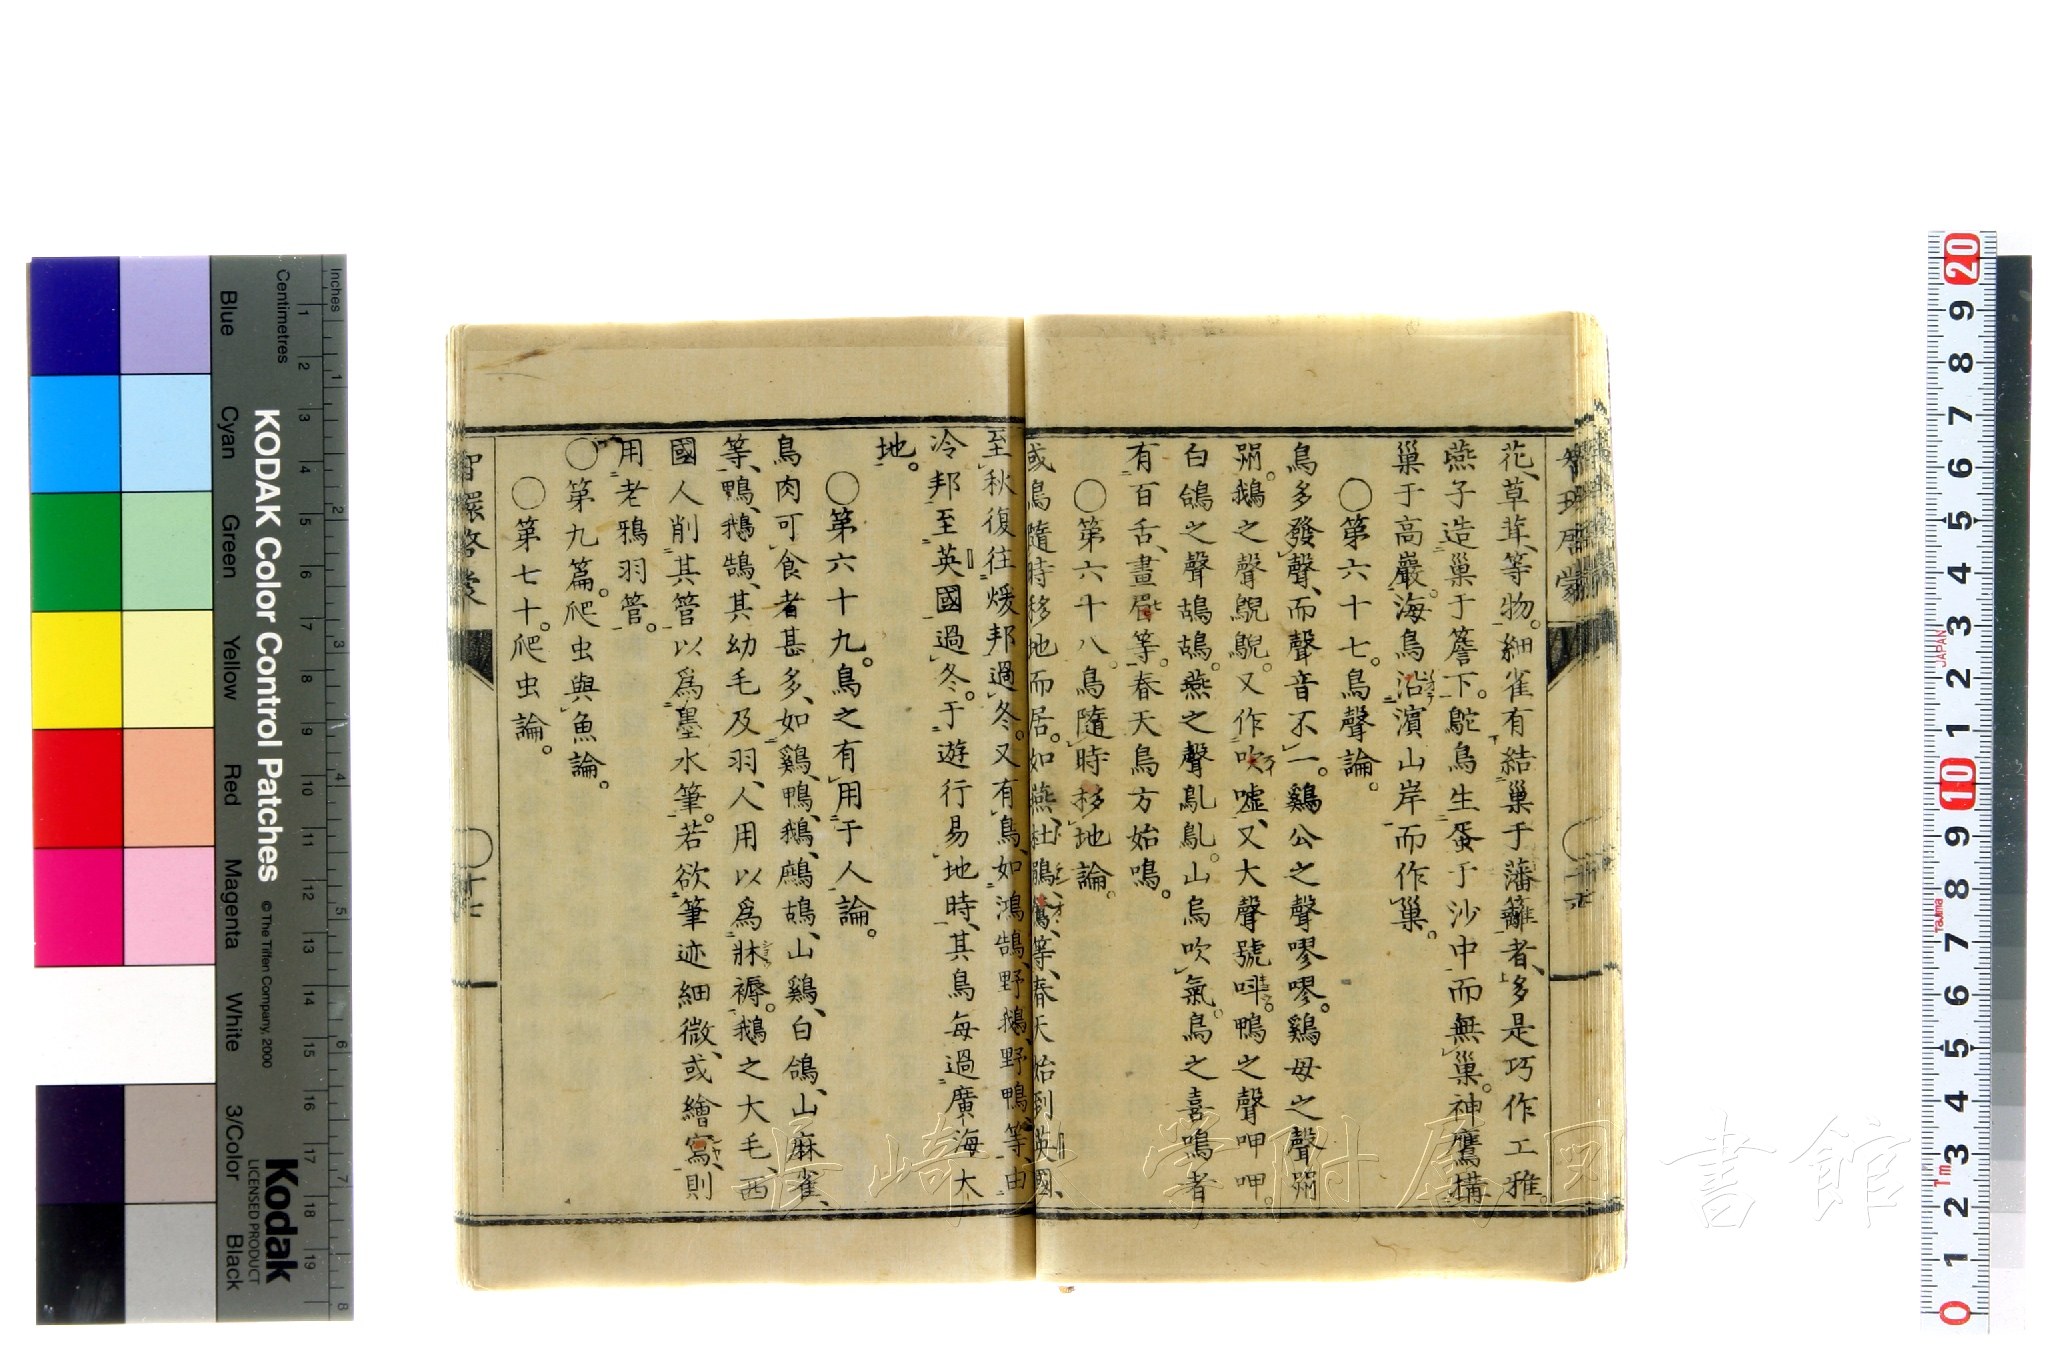 花、草茸、等物。細雀有結巢于藩籬者、多是巧作工雅。
燕子造巢于簷下。鴕鳥生蛋于沙中而無巢。神鷹構
巢于高巖。海鳥沿濱山岸而作巢。
〇第六十七。鳥聲論。
鳥多發聲、而聲音不一。鷄公之聲嘐嘐。鷄母之聲
鵝之聲鶃鶃。又作吹噓、又大聲號呌。鴨之聲呷呷。
白鴿之聲鴣鴣。燕之聲鳦鳦。山烏吹氣。鳥之喜鳴者
有百舌、畫眉等。春天鳥方始鳴。
〇第六十八。鳥隨時移地論。
或鳥隨時移地而居。如燕、杜鵑、等、春天始到英國、
至秋復往煖邦過冬。又有鳥、如鴻鵠、野鵝、野鴨、等、由
冷邦至英國過冬。于遊行易地時、其鳥每過廣海大
地。
〇第六十九。鳥之有用于人論。
鳥肉可食者甚多、如鷄、鴨、鵝、鷓鴣、山鷄、白鴿、山麻雀、
等、鴨、鵝、鵠、其幼毛及羽、人用以爲牀褥。鵝之大毛、西
國人削其管以爲墨水筆。若欲筆迹細微、或繪寫、則
用老鴉羽管。
〇第九篇。爬虫與魚論。
〇第七十。爬虫論。
智環啓蒙
〇十七
長崎大学附属図書館
KODAK Color Control Patches
© The Tiffen Company, 2000
Kodak
LICENSED PRODUCT
Inches
Centimetres
Blue
Cyan
Green
Yellow
Red
Magenta
White
3/Color
Black
1 2 3 4 5 6 7 8 9 10 11 12 13 14 15 16 17 18 19
1 2 3 4 5 6 7 8
20 9 8 7 6 5 4 3 2 1 10 9 8 7 6 5 4 3 2 1 0
JAPAN
Tajima
1m